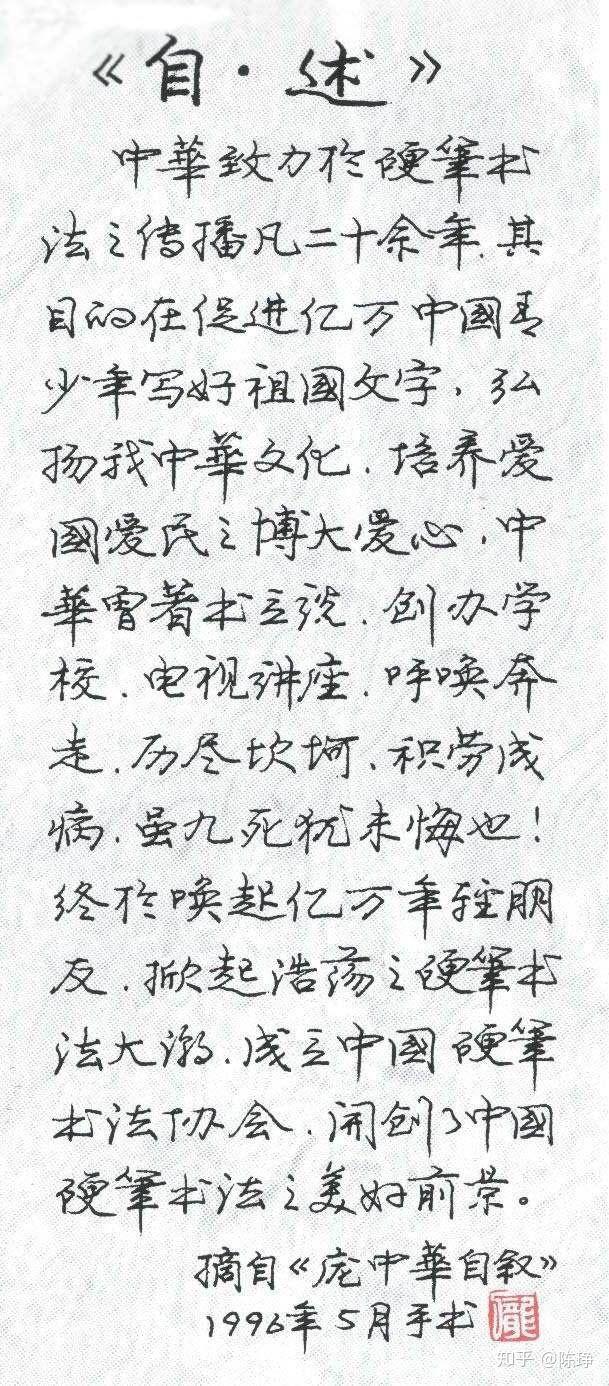 《自·述》
中華致力於硬筆书
法之传播凡二十余年.其
目的在促进亿万中國青
少年写好祖國文字,弘
扬我中華文化.培养爱
國爱民之博大爱心,中
華曾著书立说.创办学
校.电视讲座.呼唤奔
走.历尽坎坷.积劳成
病.虽九死犹未悔也!
终於唤起亿万年轻朋
友.掀起浩荡之硬筆书
法大潮.成立中國硬筆
书法协会.開创了中國
硬筆书法之美好前景。
摘自《庞中華自叙》
1996年5月手书
龐
知乎 @陈琤